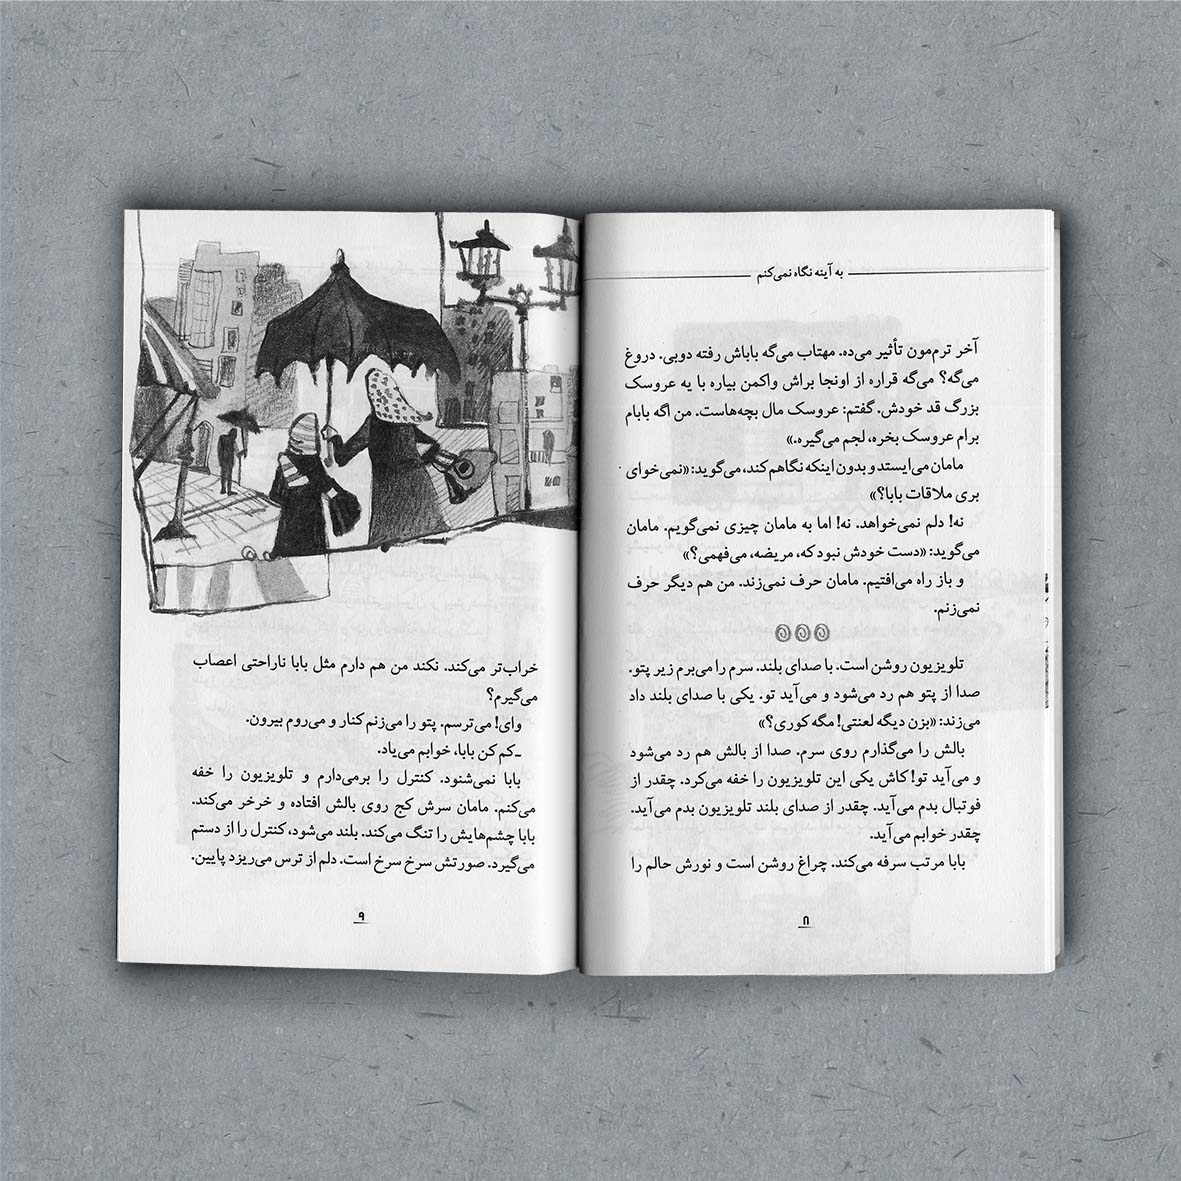 به آینه نگاه نمی‌کنم
آخر ترم‌مون تأثیر می‌ده. مهتاب می‌گه باباش رفته دوبی. دروغ
می‌گه؟ می‌گه قراره از اونجا براش واکمن بیاره با یه عروسک
بزرگ قد خودش. گفتم: عروسک مال بچه‌هاست. من اگه بابام
برام عروسک بخره، لجم می‌گیره.»
مامان می‌ایستد و بدون اینکه نگاهم کند، می‌گوید: «نمی‌خوای
بری ملاقات بابا؟»
نه! دلم نمی‌خواهد. نه! اما به مامان چیزی نمی‌گویم. مامان
می‌گوید: «دست خودش نبود که، مریضه، می‌فهمی؟»
و باز راه می‌افتیم. مامان حرف نمی‌زند. من هم دیگر حرف
نمی‌زنم.
تلویزیون روشن است. با صدای بلند. سرم را می‌برم زیر پتو.
صدا از پتو هم رد می‌شود و می‌آید تو. یکی با صدای بلند داد
می‌زند: «بزن دیگه لعنتی! مگه کوری؟»
بالش را می‌گذارم روی سرم. صدا از بالش هم رد می‌شود
و می‌آید تو! کاش یکی این تلویزیون را خفه می‌کرد. چقدر از
فوتبال بدم می‌آید. چقدر از صدای بلند تلویزیون بدم می‌آید.
چقدر خوابم می‌آید.
بابا مرتب سرفه می‌کند. چراغ روشن است و نورش حالم را
۸
خراب‌تر می‌کند. نکند من هم دارم مثل بابا ناراحتی اعصاب
می‌گیرم؟
وای! می‌ترسم. پتو را می‌زنم کنار و می‌روم بیرون.
ـ کم کن بابا، خوابم می‌یاد.
بابا نمی‌شنود. کنترل را برمی‌دارم و تلویزیون را خفه
می‌کنم. مامان سرش کج روی بالش افتاده و خرخر می‌کند.
بابا چشم‌هایش را تنگ می‌کند. بلند می‌شود، کنترل را از دستم
می‌گیرد. صورتش سرخ سرخ است. دلم از ترس می‌ریزد پایین.
۹